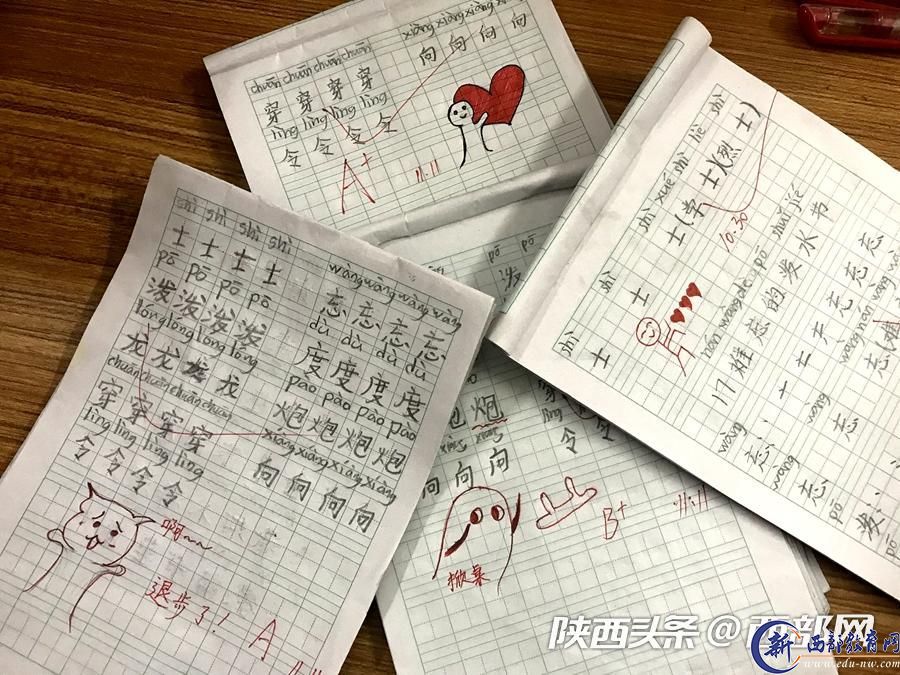 chuān chuān chuān chuān
xiàng xiàng xiàng xiàng
穿 穿 穿 穿
向 向 向 向
lìng lìng lìng lìng
令 令 令 令
A+
11.11
shì shì shì shì
士 士 士 士
pō pō pō pō
泼 泼 泼 泼
lóng lóng lóng lóng
龙 龙 龙 龙
chuān chuān chuān chuān
穿 穿 穿 穿
lìng lìng lìng lìng
令 令 令 令
wàng wàng wàng wàng
忘 忘 忘 忘
dù dù dù dù
度 度 度 度
pào pào pào pào
炮 炮 炮 炮
xiàng xiàng xiàng xiàng
向 向 向 向
啊~~
退步了!
A
11.11
pō pō
泼
炮
向 向 向
令 令
掀桌
B+
11.11
shì shì shì xué shì liè shì
士 士 士(学士)(烈士)
10.30
nán wàng de pō shuǐ jié
17难忘的泼水节
wàng wàng
忘 忘 忘 忘
陕西头条 @西部网
新 西部教育网
www.edu-nw.com